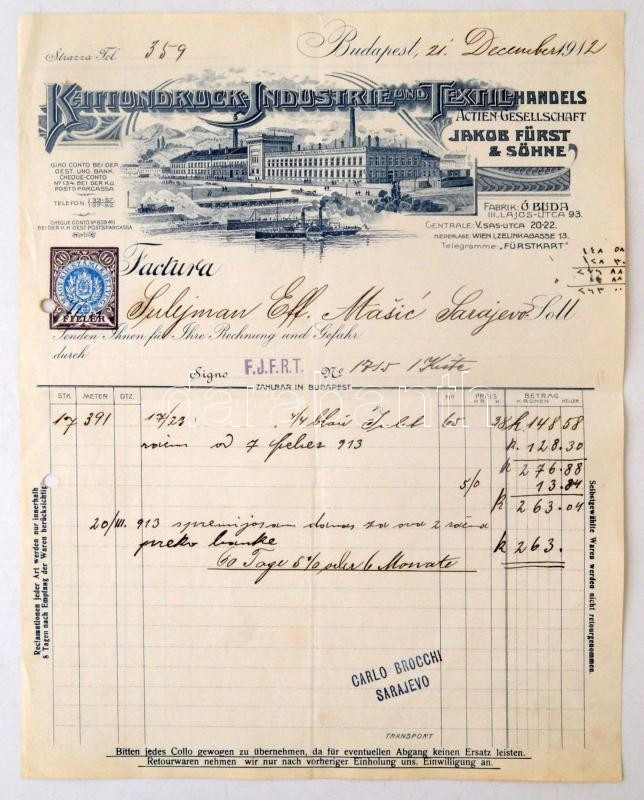 Strazza Fol. 359
Budapest, 21. December 1912
KATTUNDRUCK-INDUSTRIE UND TEXTIL-HANDELS
ACTIEN-GESELLSCHAFT
JAKOB FÜRST
& SÖHNE
GIRO CONTO BEI DER
OEST. UNG. BANK.
CHEQUE-CONTO
No 134. BEI DER K.U.
POSTSPARCASSA
TELEFON
CHEQUE CONTO No
BEI DER K.K. OEST. POSTSPARCASSA
FABRIK: Ó BUDA
III. LAJOS-UTCA 93.
CENTRALE: V. SAS-UTCA 20-22.
NIEDERLAGE: WIEN I, ZELINKAGASSE 13.
Telegramme: „FÜRSTKART"
١٤٨ ٥٨
10 10
FILLÉR
Factura
Sulejman Eff. Mašić Sarajevo Soll
Senden Ihnen für Ihre Rechnung und Gefahr
durch
Signo F.J.F.R.T. No 1715 1 Kiste
ZAHLBAR IN BUDAPEST
STK METER DTZ. No PREIS KR H BETRAG KRONEN HELLER
17 391 17/23 4/4 blau 60 38 K. 148.58
račun od 7 feber 913 K. 128.30
K 276.88
5/0 13.84
K 263.04
20/III. 913 spremijosam danas za ova 2 računa
preko banke K 263.
60 Tage 5% oder 6 Monate
Reclamationen jeder Art werden nur innerhalb
8 Tagen nach Empfang der Waren berücksichtigt.
Selbstgewählte Waren werden nicht retourgenommen.
CARLO BROCCHI
SARAJEVO
TRANSPORT
Bitten jedes Collo gewogen zu übernehmen, da für eventuellen Abgang keinen Ersatz leisten.
Retourwaren nehmen wir nur nach vorheriger Einholung uns. Einwilligung an.
darabanth